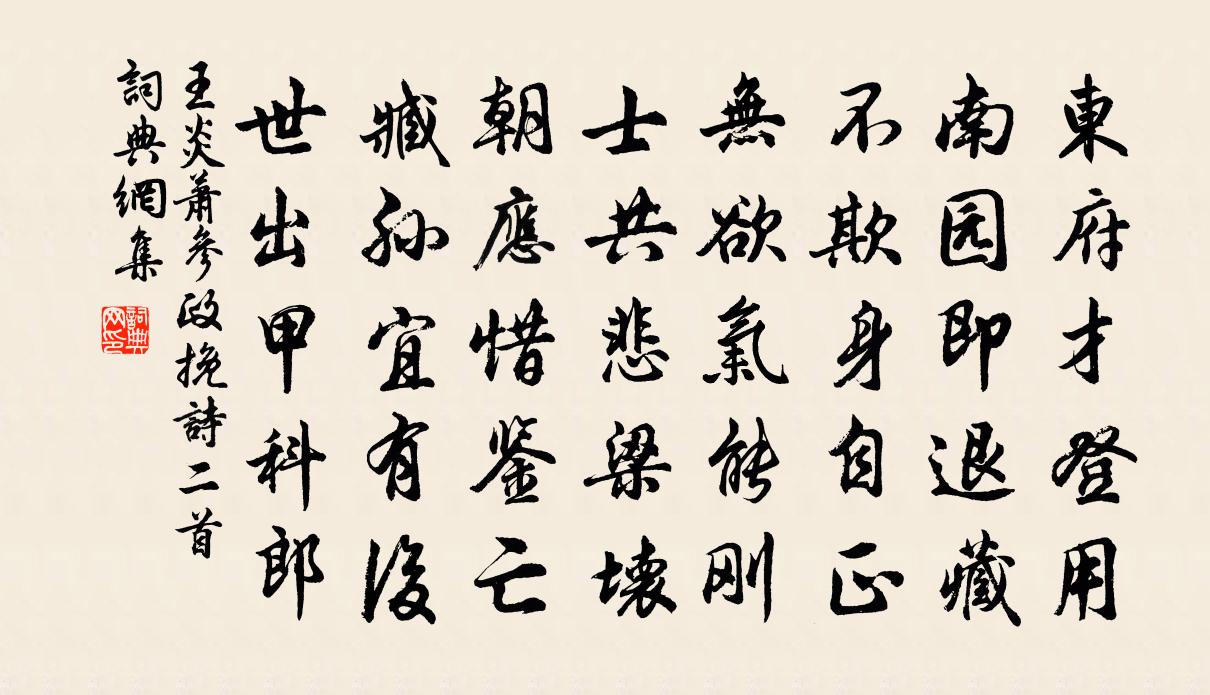 東府才登用
南园即退藏
不欺身自正
無欲氣能刚
士共悲梁壊
朝應惜鉴亡
臧孫宜有後
世出甲科郎
王炎蕭參政挽詩二首
詞典網集
詞典网印